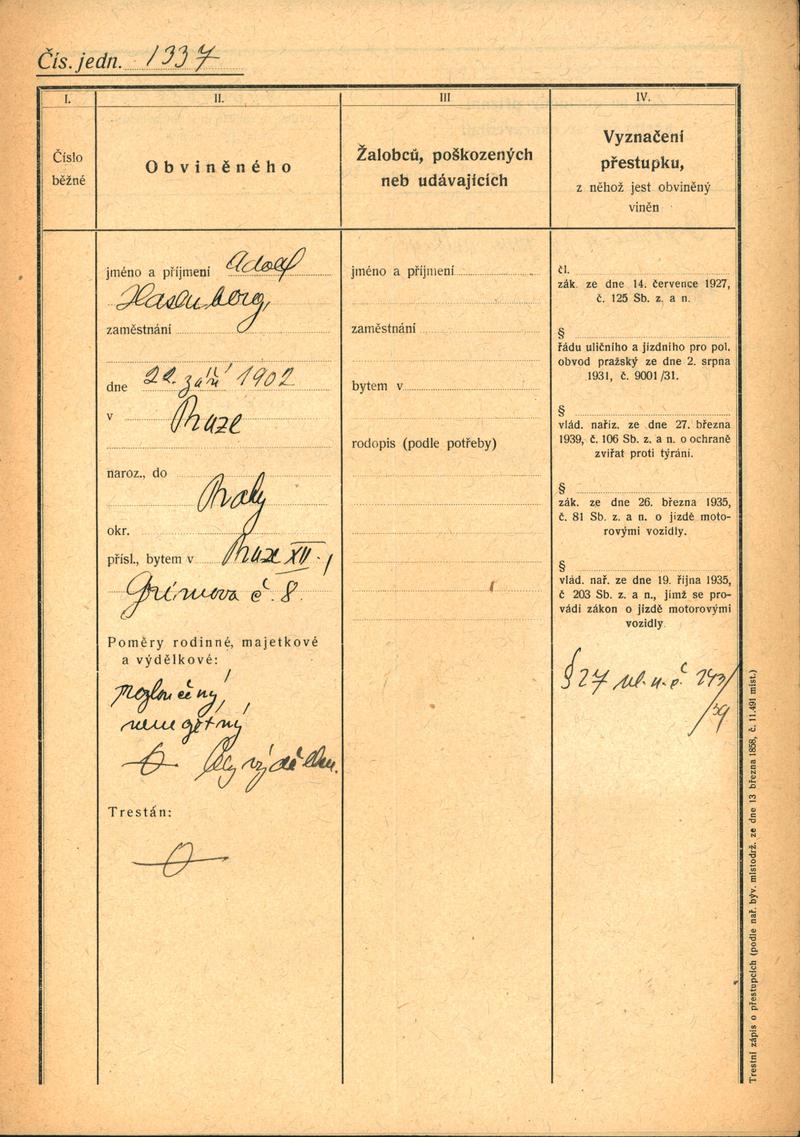 Čís. jedn. 1337
I.
II.
III
IV.
Číslo
běžné
Obviněného
Žalobců, poškozených
neb udávajících
Vyznačení
přestupku,
z něhož jest obviněný
viněn
jméno a příjmení Adolf
Hasenberg
zaměstnání
dne 22. září 1902
v Praze
naroz., do
Prahy
okr.
přísl., bytem v Praze XII.,
Grimova č. 8.
Poměry rodinné, majetkové
a výdělkové:
rozloučený,
nemajetný,
Trestán:
jméno a příjmení
zaměstnání
bytem v
rodopis (podle potřeby)
čl.
zák. ze dne 14. července 1927,
č. 125 Sb. z. a n.
§
řádu uličního a jízdního pro pol.
obvod pražský ze dne 2. srpna
1931, č. 9001/31.
§
vlád. naříz. ze dne 27. března
1939, č. 106 Sb. z. a n. o ochraně
zvířat proti týrání.
§
zák. ze dne 26. března 1935,
č. 81 Sb. z. a n. o jízdě moto-
rovými vozidly.
§
vlád. nař. ze dne 19. října 1935,
č 203 Sb. z. a n., jímž se pro-
vádí zákon o jízdě motorovými
vozidly
§ 27 vl. n. č 243/
/39
Trestní zápis o přestupcích (podle nař. býv. místodrž. ze dne 13 března 1858, č. 11.491 míst.)